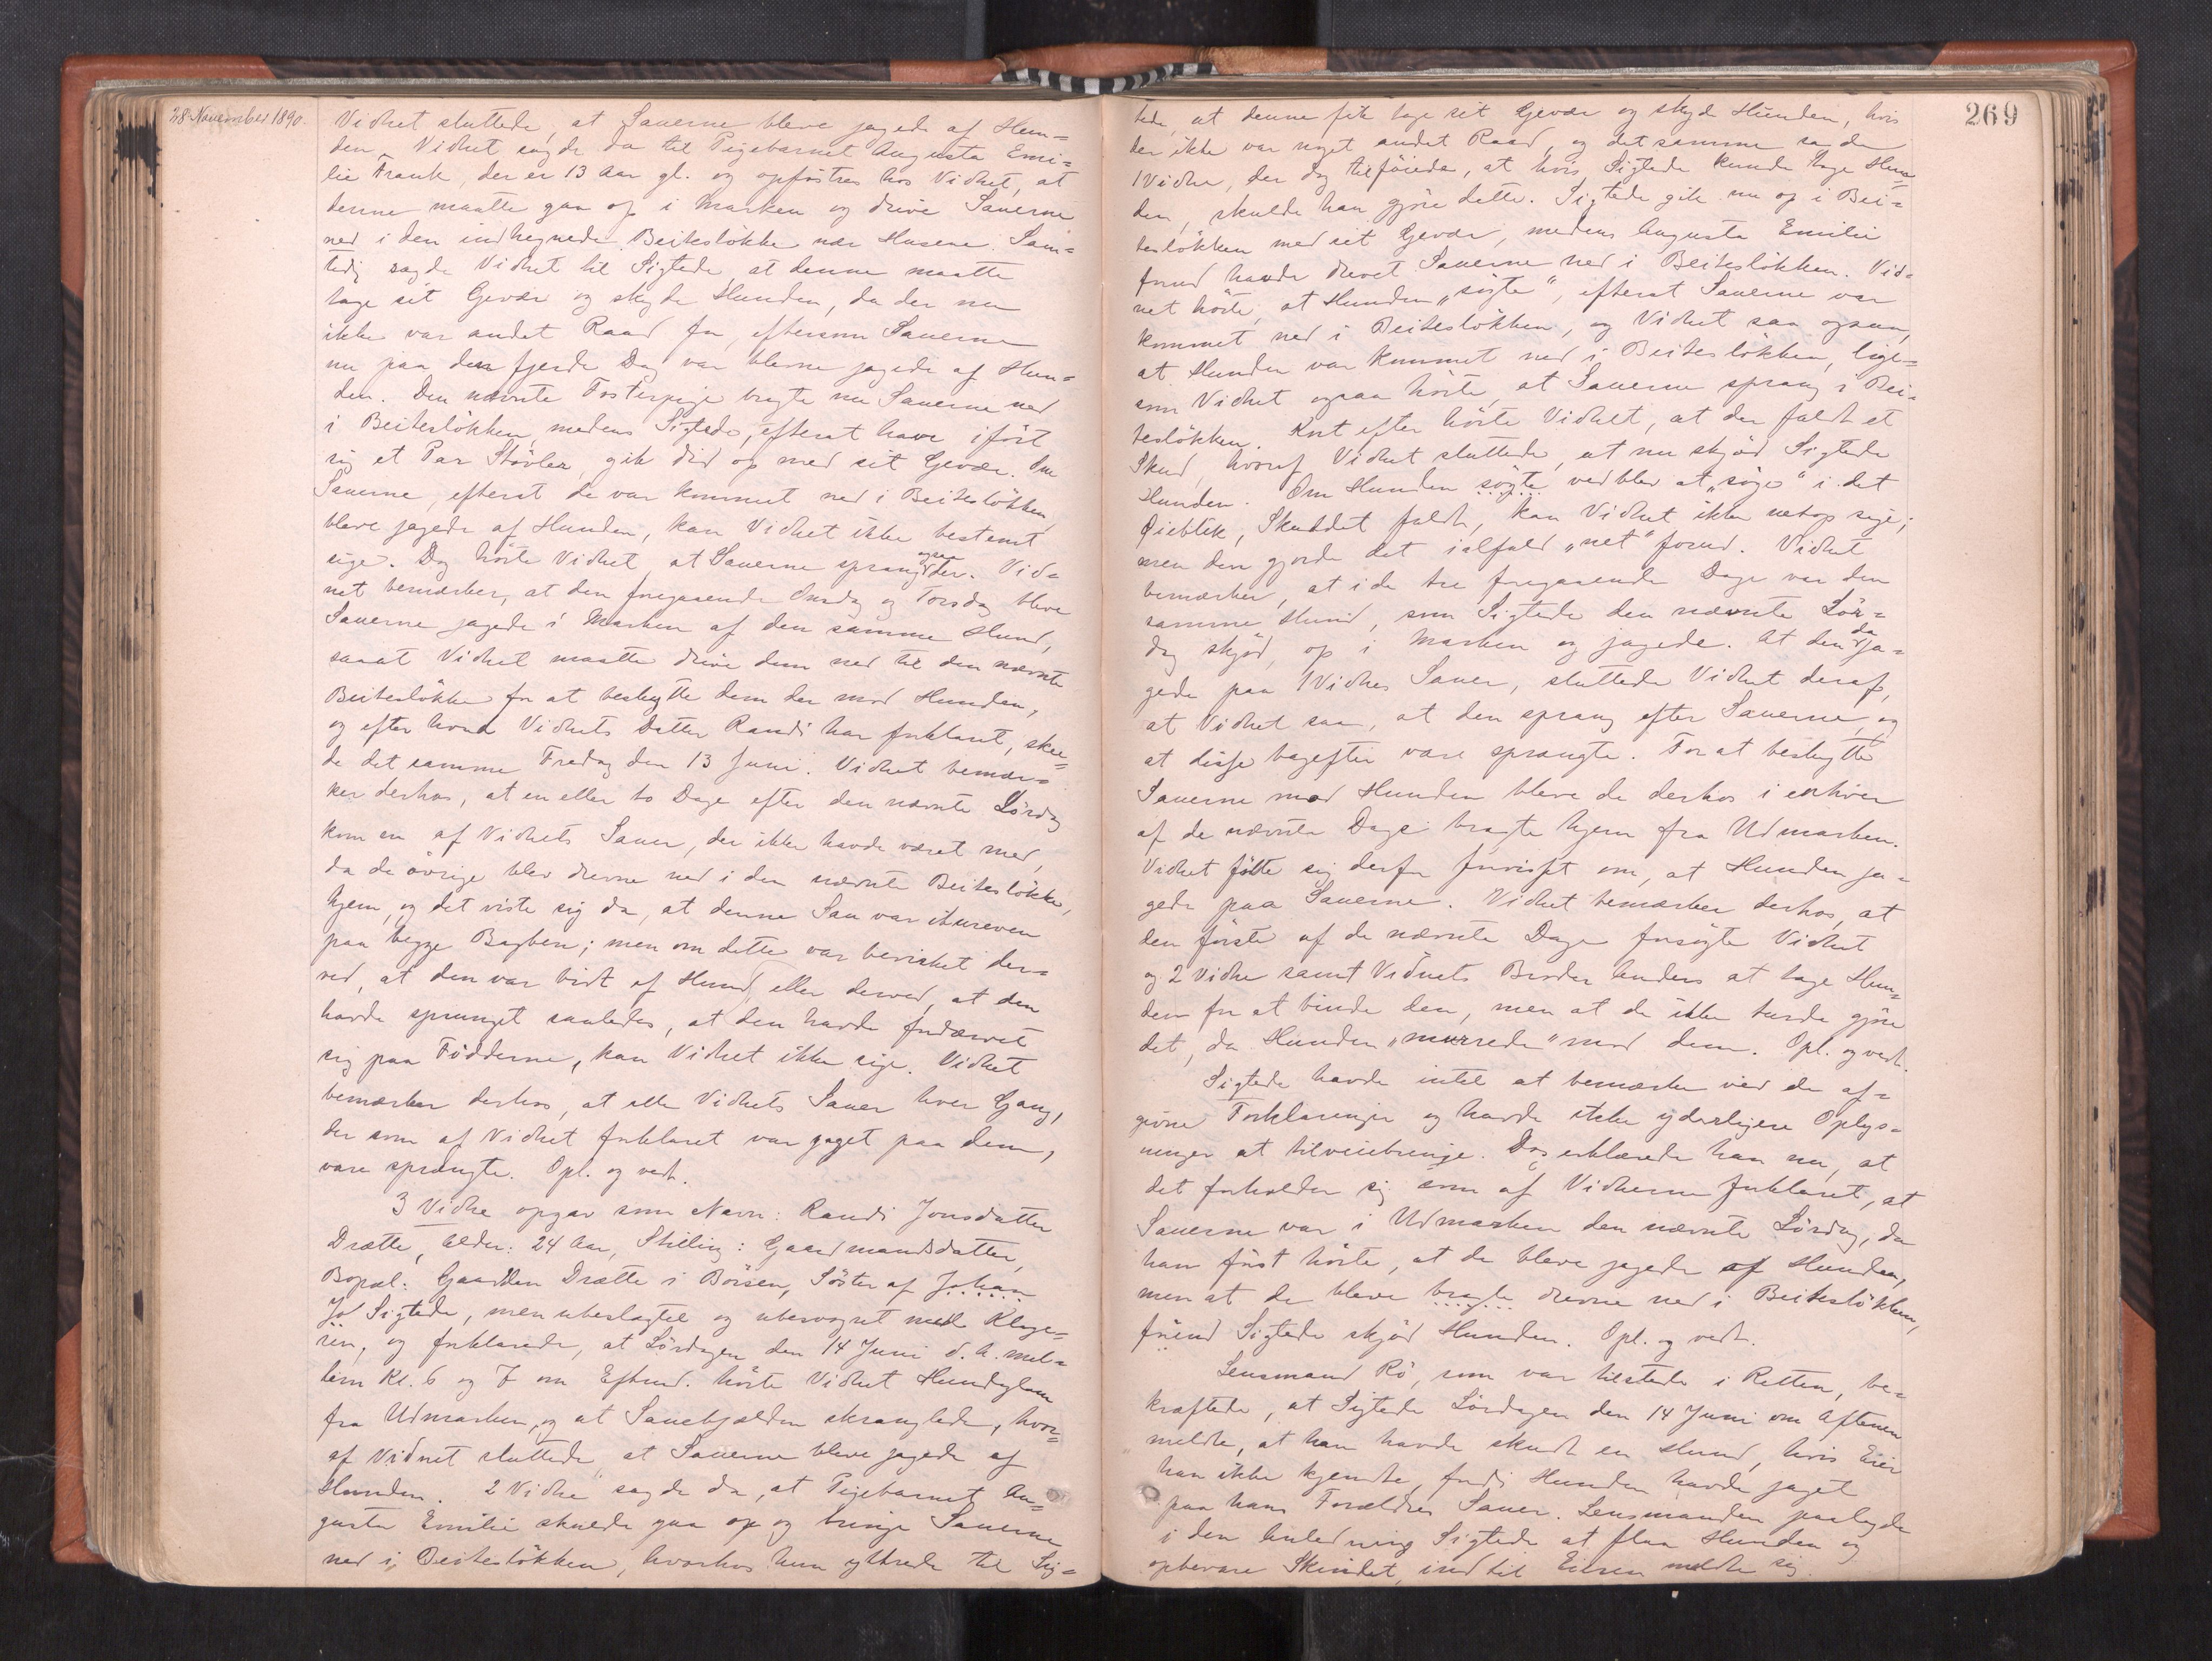 28 November 1890.
Vidnet sluttede, at Sauerne bleve jagede af Hun=
den. Vidnet sagde da til Pigebarnet Augusta Emi=
lie Frank, der er 13 Aar gl. og opföstres hos Vidnet, at
denne maatte gaa op i Marken og drive Sauerne
ned i den indhegnede Beitesløkke nær Husene. Sam=
tidig sagde Vidnet til Sigtede, at denne maatte
tage sit Gevær og skyde Hunden, da der nu
ikke var andet Raad for, eftersom Sauerne
nu paa den fjerde Dag var blevne jagede af Hun=
den. Den nævnte Fosterpige bragte nu Sauerne ned
i Beitesløkken, medens Sigtede, efterat have iført
sig et Par Støvler, gik did op med sit Gevær. Om
Sauerne, efterat de var kommet ned i Beitesløkken,
bleve jagede af Hunden, kan Vidnet ikke bestemt
sige. Dog hörte Vidnet, at Sauerne sprang ogsaa der. Vid=
net bemærker, at den foregaaende Onsdag og Torsdag bleve
Sauerne jagede i Marken af den samme Hund,
saaat Vidnet maatte drive dem ned til den nævnte
Beitesløkke for at beskytte dem der mod Hunden,
og efter hvad Vidnets Datter Randi har forklaret, skee=
de det samme Fredag den 13 Juni. Vidnet bemær=
ker derhos, at en eller to Dage efter den nævnte Lördag
kom en af Vidnets Sauer, der ikke havde været med,
da de övrige blev drevne ned i den nævnte Beitesløkke,
hjem, og det viste sig da, at denne Sau var itureven
paa begge Bagben; men om dette var bevirket der=
ved, at den var bidt af Hund, eller derved, at den
havde sprunget saaledes, at den havde fordærvet
sig paa Födderne, kan Vidnet ikke sige. Vidnet
bemærker derhos, at alle Vidnets Sauer hver Gang,
der som af Vidnet forklaret var jaget paa dem,
vare sprængte. Opl. og vedt.
3 Vidne opgav som Navn: Randi Jonsdatter
Drætte, Alder: 24 Aar, Stilling: Gaardmandsdatter,
Bopæl: Gaarden Drætte i Börsen, Söster af Johan
Jo Sigtede, men ubeslægtet og ubesvogret med Klage=
ren, og forklarede, at Lördagen den 14 Juni d. A. mel=
lem Kl. 6 og 7 om Efterm. hörte Vidnet Hundeglam
fra Udmarken, og at Sauebjælden skranglede, hvor=
af Vidnet sluttede, at Sauerne bleve jagede af
Hunden. 2 Vidne sagde da, at Pigebarnet Au=
gusta Emilie skulde gaa op og bringe Sauerne
ned i Beitesløkken, hvorhos hun yttrede til Sig=
269
tede, at denne fik tage sit Gevær og skyde Hunden, hvis
der ikke var noget andet Raad, og det samme sagde
1 Vidne, der dog tilföiede, at hvis Sigtede kunde tage Hun=
den, skulde han gjöre dette. Sigtede gik nu op i Bei=
tesløkken med sit Gevær, medens Augusta Emilie
forud havde drevet Sauerne ned i Beitesløkken. Vid=
net hörte, at Hunden „sögte“, efterat Sauerne var
kommet ned i Beitesløkken, og Vidnet saa ogsaa,
at Hunden var kommet ned i Beitesløkken, lige=
som Vidnet ogsaa hörte, at Sauerne sprang i Bei=
tesløkken. Kort efter hörte Vidnet, at der faldt et
Skud, hvoraf Vidnet sluttede, at nu skjöd Sigtede
Hunden. Om Hunden sögte vedblev at „söge“ i det
Öieblik, Skuddet faldt, kan Vidnet ikke netop sige;
men den gjorde det ialfald „net“ forud. Vidnet
bemærker, at i de tre foregaaende Dage var den
samme Hund, som Sigtede den nævnte Lör=
dag skjöd, op i Marken og jagede. At den da ja=
gede paa 1 Vidnes Sauer, sluttede Vidnet deraf,
at Vidnet saa, at den sprang efter Sauerne, og
at disse bagefter vare sprængte. For at beskytte
Sauerne mod Hunden bleve de derhos i enhver
af de nævnte Dage bragte hjem fra Udmarken.
Vidnet fölte sig derfor forvisset om, at Hunden ja=
gede paa Sauerne. Vidnet bemærker derhos, at
den förste af de nævnte Dage forsögte Vidnet
og 2 Vidne samt Vidnets Broder Anders at tage Hun=
den for at binde den, men at de ikke turde gjöre
det, da Hunden „murrede“ mod dem. Opl. og vedt.
Sigtede havde intet at bemærke ved de af=
givne Forklaringer og havde ikke yderligere Oplys=
ninger at tilveiebringe. Dog erklærede han nu, at
det forholder sig som af Vidnerne forklaret, at
Sauerne var i Udmarken den nævnte Lördag, da
han först hörte, at de bleve jagede af Hunden,
men at de bleve bragte drevne ned i Beitesløkken,
förend Sigtede skjöd Hunden. Opl. og vedt.
Lensmand Rö, som var tilstede i Retten, be=
kræftede, at Sigtede Lördagen den 14 Juni om Aftenen
meldte, at han havde skudt en Hund, hvis Eier
han ikke kjendte, fordi Hunden havde jaget
paa hans Forældres Sauer. Lensmanden paalagde
i den Anledning Sigtede at flaa Hunden og
opbevare Skindet, indtil Eieren meldte sig.